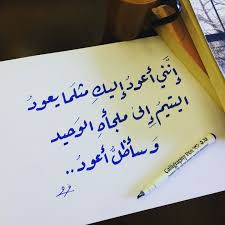 إنّني أعودُ إليكِ مثلَما يعودُ
اليتيمُ إلى ملجأهِ الوَحيد
وَسأظلُّ أعودُ..
Calligraphy Pen